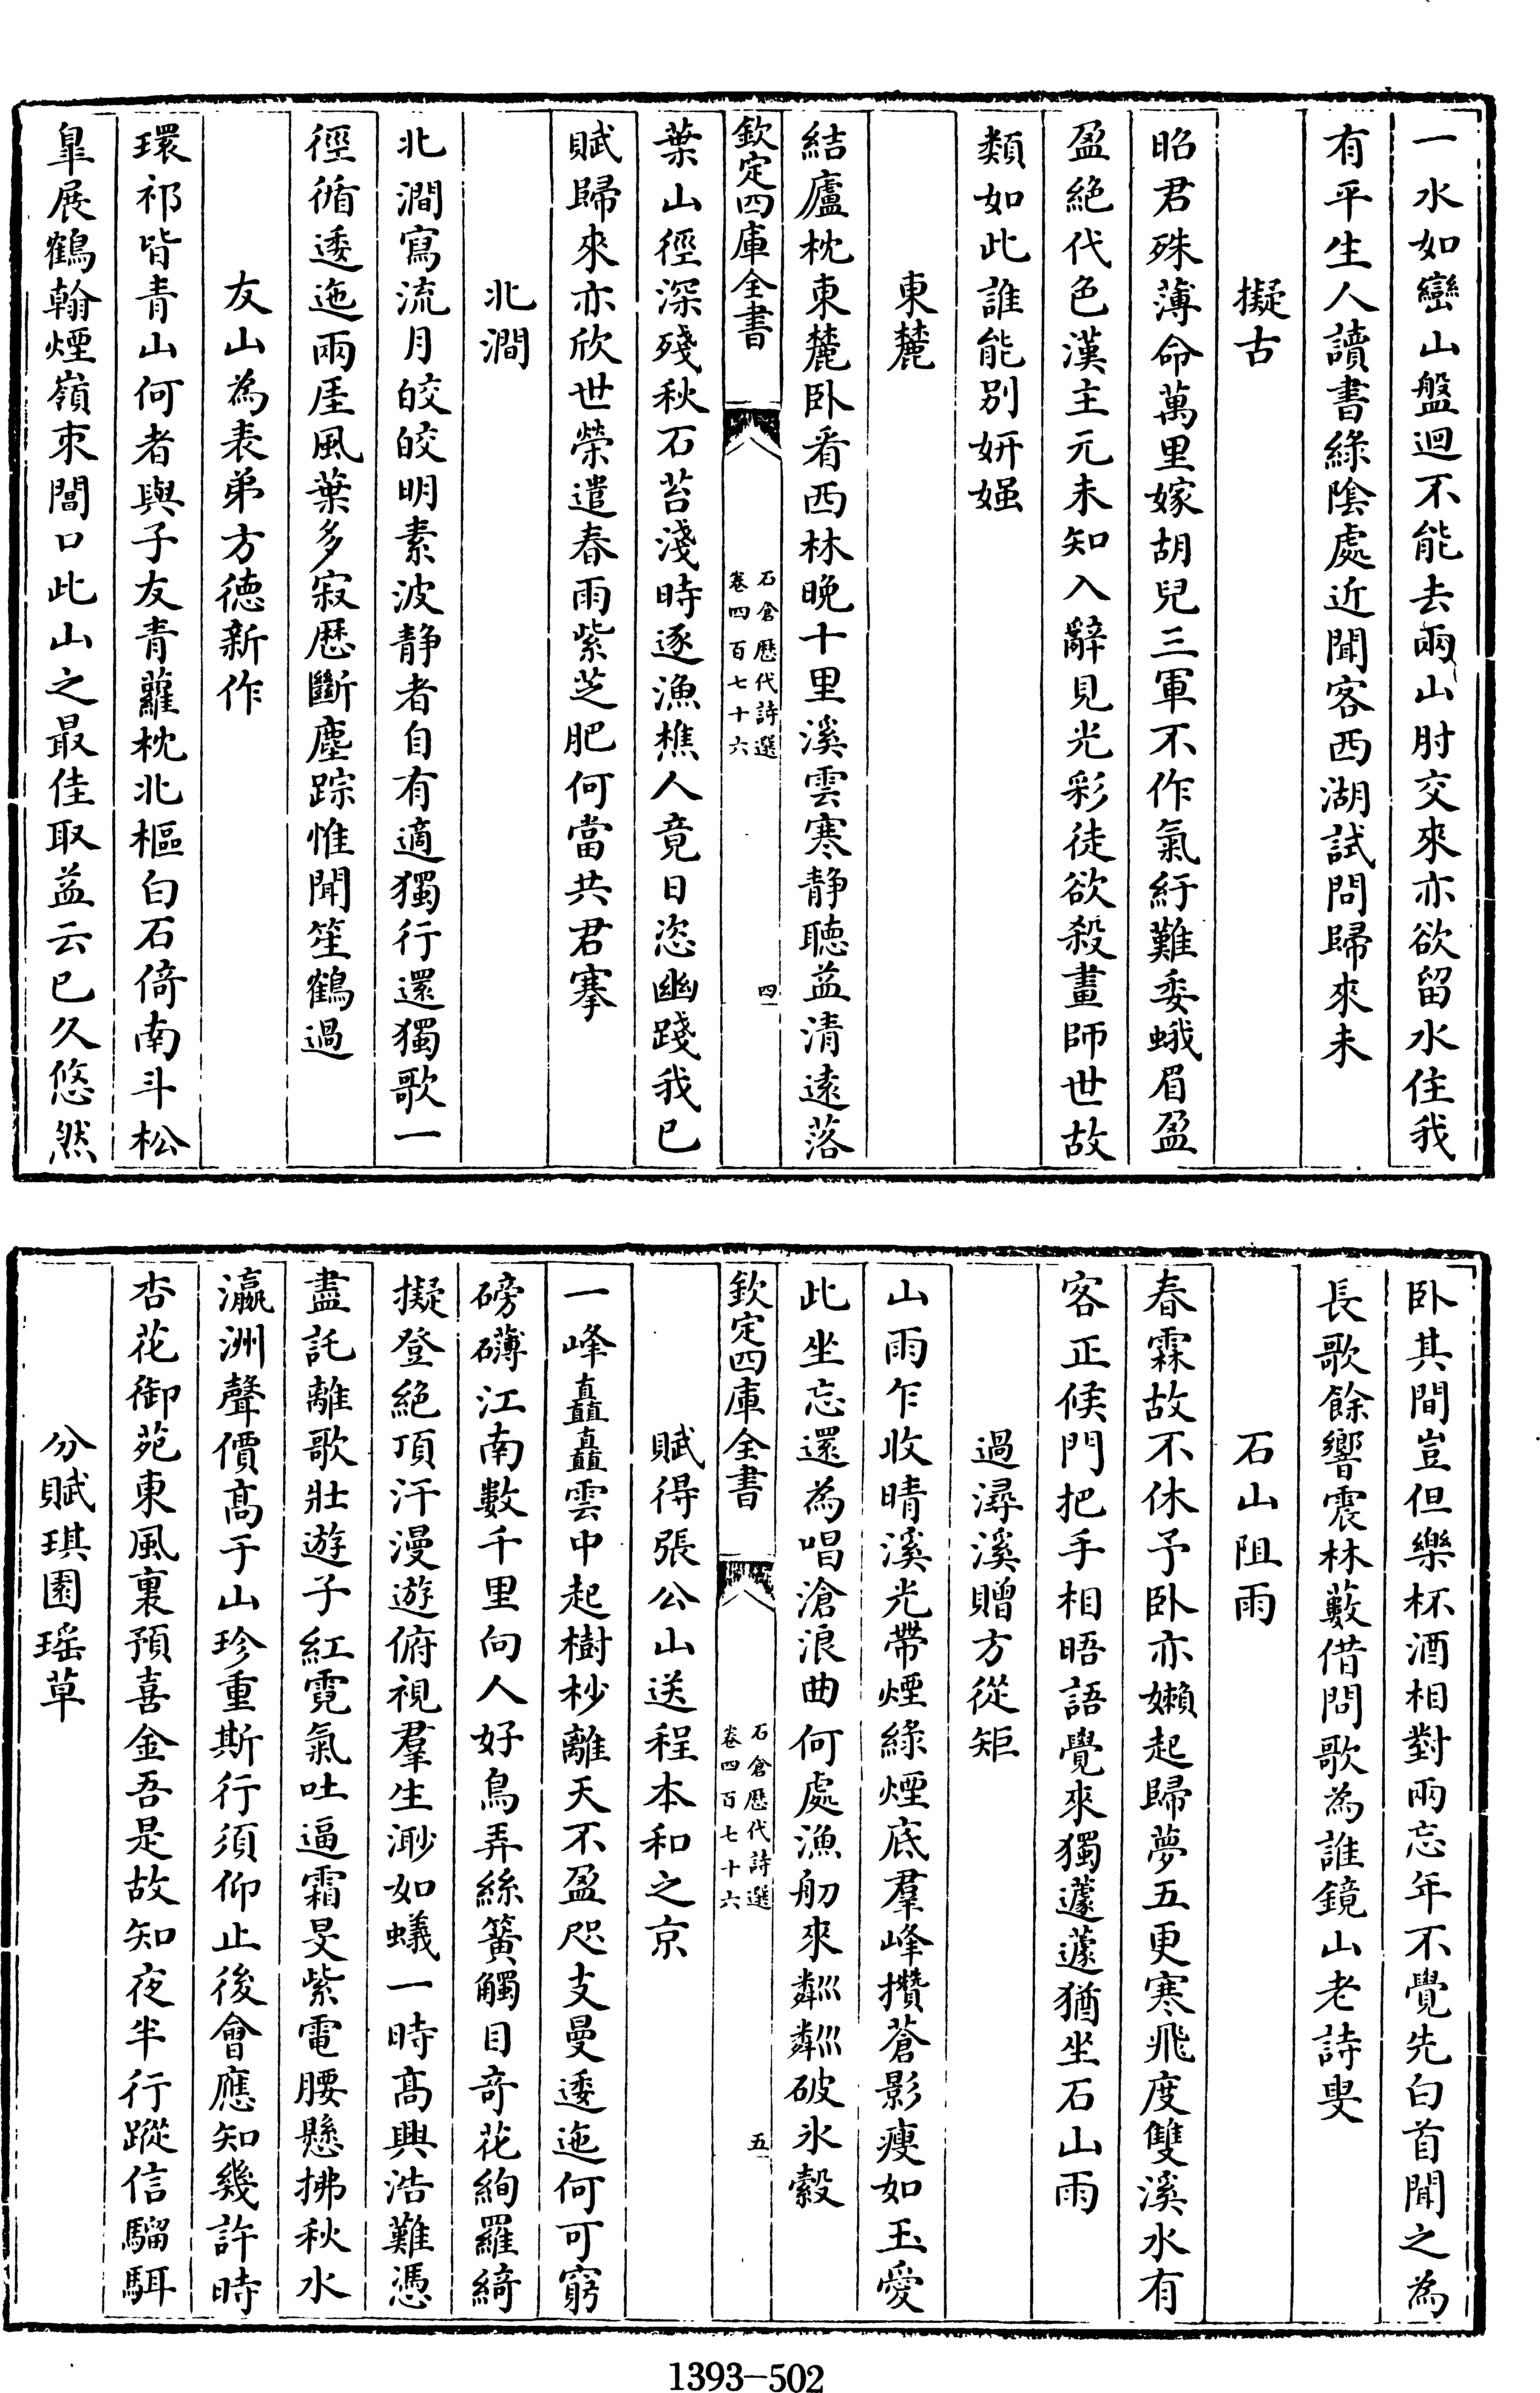 一水如巒山盤迴不能去兩山肘交來亦欲留水住我
有平生人讀書綠陰處近聞客西湖試問歸來未
擬古
昭君殊薄命萬里嫁胡兒三軍不作氣紆難委蛾眉盈
盈絕代色漢主元未知入辭見光彩徒欲殺畫師世故
類如此誰能別妍媸
東麓
結廬枕東麓卧看西林晚十里溪雲寒静聽益清遠落
欽定四庫全書
石倉歷代詩選
卷四百七十六
四
葉山徑深殘秋石苔淺時逐漁樵人竟日恣幽踐我已
賦歸來亦欣世榮遣春雨紫芝肥何當共君搴
北澗
北澗寫流月皎皎明素波静者自有適獨行還獨歌一
徑循逶迤兩厓風葉多寂歷斷塵踪惟聞笙鶴過
友山為表弟方德新作
環祁皆青山何者與子友青蘿枕北樞白石倚南斗松
皐展鶴翰煙嶺束閶口此山之最佳取益云已久悠然
卧其間豈但樂杯酒相對兩忘年不覺先白首聞之為
長歌餘響震林藪借問歌為誰鏡山老詩叟
石山阻雨
春霖故不休予卧亦嬾起歸夢五更寒飛度雙溪水有
客正候門把手相晤語覺來獨蘧蘧猶坐石山雨
過潯溪贈方從矩
山雨乍收晴溪光帶煙綠煙底羣峰攢蒼影瘦如玉愛
此坐忘還為唱滄浪曲何處漁舠來粼粼破氷縠
欽定四庫全書
石倉歷代詩選
卷四百七十六
五
賦得張公山送程本和之京
一峰矗矗雲中起樹杪離天不盈咫支蔓逶迤何可窮
磅礴江南數千里向人好鳥弄絲簧觸目奇花絢羅綺
擬登絕頂汗漫遊俯視羣生渺如蟻一時高興浩難憑
盡託離歌壯遊子紅霓氣吐逼霜旻紫電腰懸拂秋水
瀛洲聲價髙于山珍重斯行須仰止後會應知幾許時
杏花御苑東風裏預喜金吾是故知夜半行蹤信騮駬
分賦琪園瑶草
1393-502